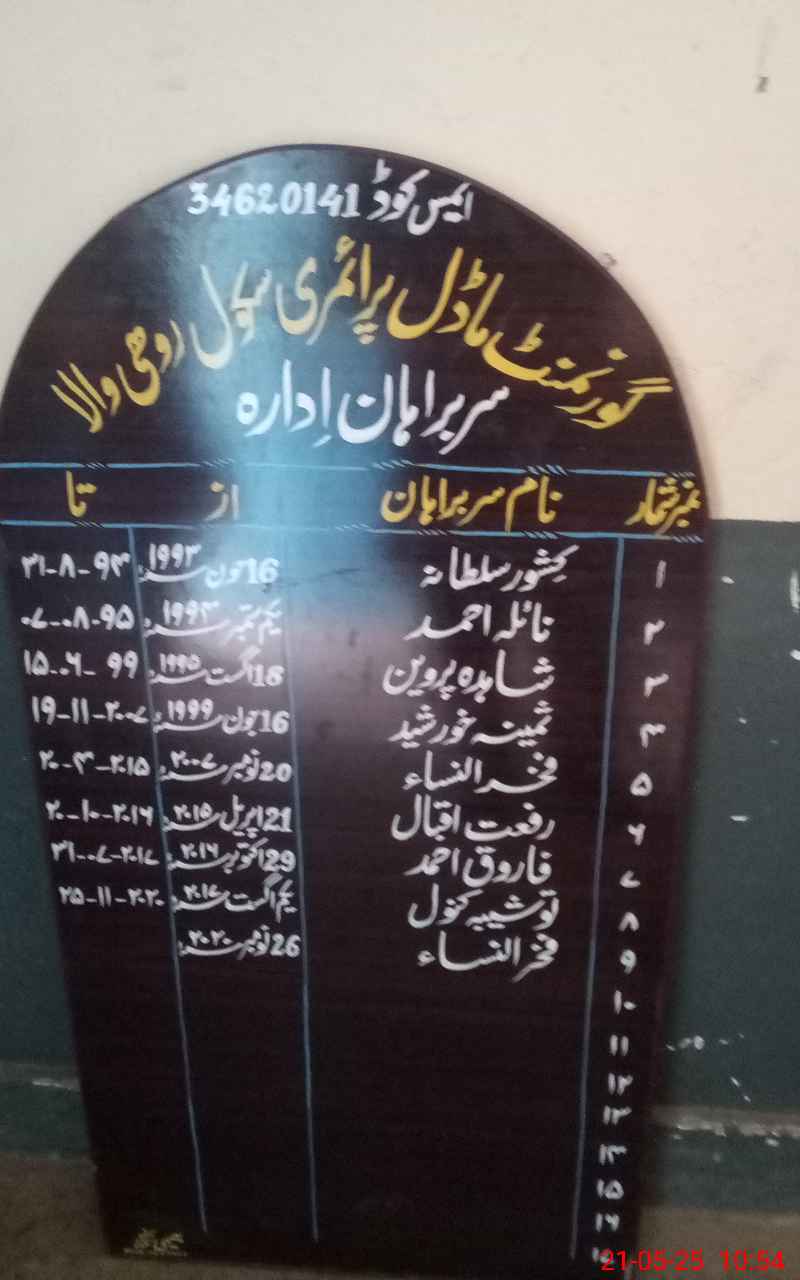 ایمس کوڈ 34620141
گورنمنٹ ماڈل پرائمری سکول روحی والا
سربراہان اِدارہ
نمبر شمار نام سربراہان از تا
۱ کِشور سلطانہ 16 جون ۱۹۹۳ء ۳۱-۸-۹۳
۲ نائلہ احمد یکم ستمبر ۱۹۹۳ء ۰۷-۰۸-۹۵
۳ شاہدہ پروین 18 اگست ۱۹۹۵ء ۱۵-۰۶-۹۹
۴ ثمینہ خورشید 16 جون ۱۹۹۹ء ۱۹-۱۱-۲۰۰۷
۵ فخر النساء 20 نومبر ۲۰۰۷ء ۲۰-۴-۲۰۱۵
۶ رفعت اقبال 21 اپریل ۲۰۱۵ء ۲۰-۱۰-۲۰۱۶
۷ فاروق احمد 29 اکتوبر ۲۰۱۶ء ۳۱-۰۷-۲۰۱۷
۸ توشیبہ کنول یکم اگست ۲۰۱۷ء ۲۵-۱۱-۲۰۲۰
۹ فخر النساء 26 نومبر ۲۰۲۰ء
۱۰
۱۱
۱۲
۱۳
۱۴
۱۵
۱۶
21-05-25 10:54